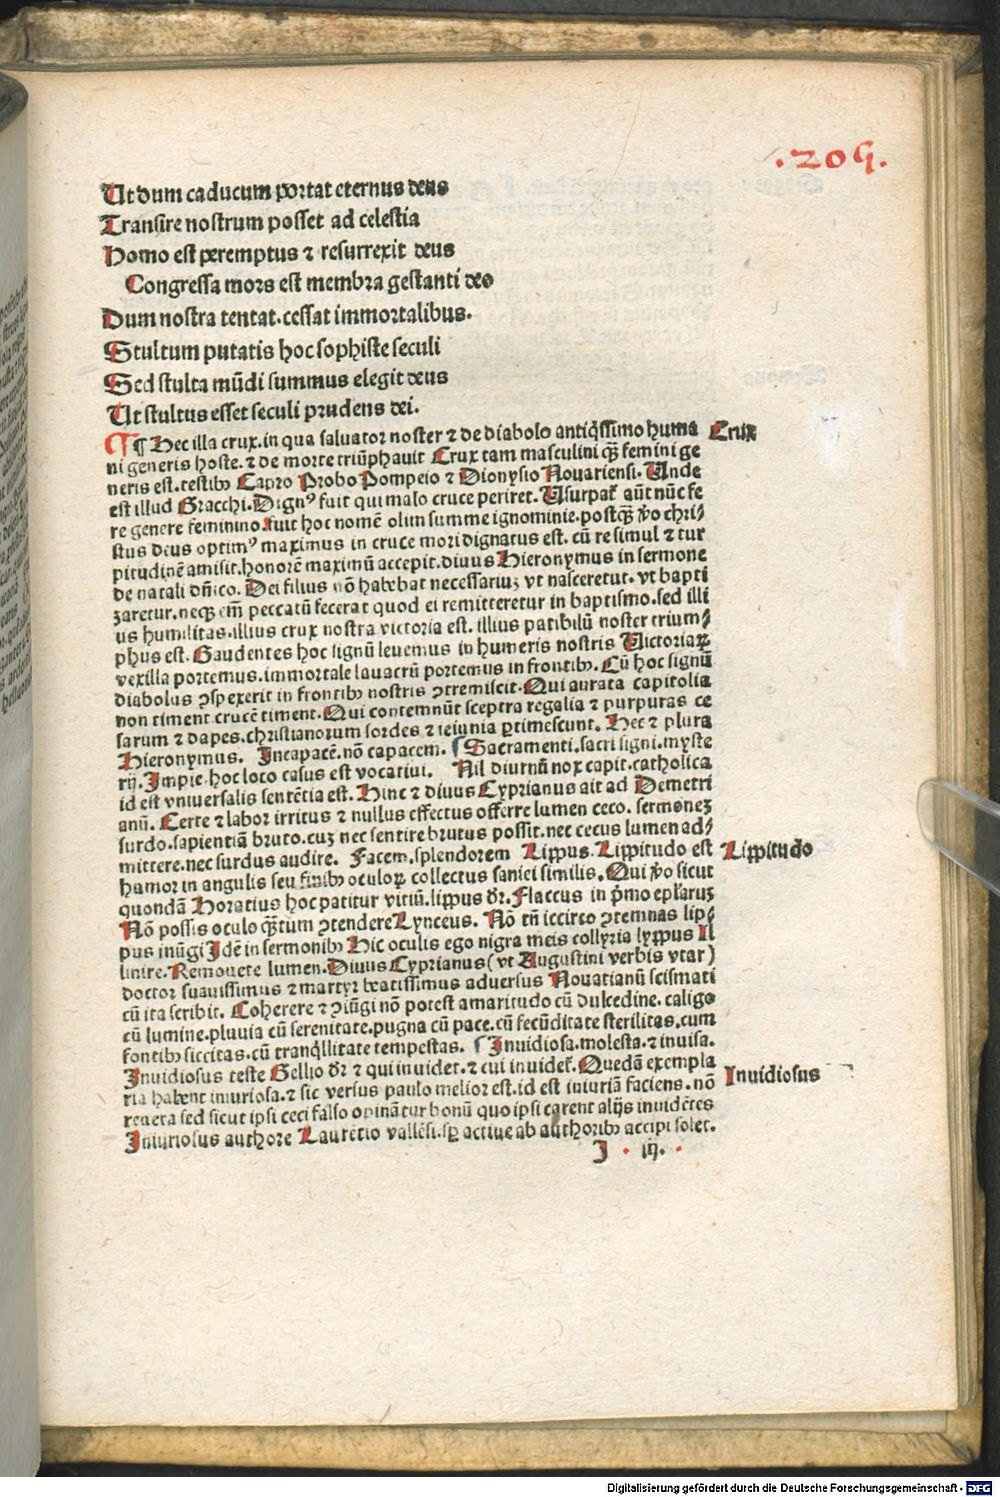 .209.
Ut dum caducum portat eternus deus
Transire nostrum posset ad celestia
Homo est peremptus ⁊ resurrexit deus
Congressa mors est membra gestanti deo
Dum nostra tentat. cessat immortalibus.
Stultum putatis hoc sophiste seculi
Sed stulta mũdi summus elegit deus
Ut stultus esset seculi prudens dei.
¶ Hec illa crux. in qua saluator noster ⁊ de diabolo antiq̃ssimo huma
Crux
ni generis hoste. ⁊ de morte triũphauit Crux tam masculini q̃ȝ femini ge
neris est. testibꝫ Capro Probo Pompeio ⁊ Dionysio Nouariensi. Unde
est illud Gracchi. Dignꝰ fuit qui malo cruce periret. Usurpat̃ aũt nũc fe
re genere feminino. fuit hoc nomẽ olim summe ignominie. postq̃ȝ v̾o chri⸗
stus deus optimꝰ maximus in cruce mori dignatus est. cũ re simul ⁊ tur
pitudinẽ amisit. honorẽ maximũ accepit. diuus Hieronymus in sermone
de natali dñico. Dei filius nõ habebat necessariuȝ vt nasceretur. vt bapti
zaretur. necꝫ em̃ peccatũ fecerat quod ei remitteretur in baptismo. sed illi
us humilitas. illius crux nostra victoria est. illius patibulũ noster trium⸗
phus est. Gaudentes hoc signũ leuemus in humeris nostris Uictoriaꝝ
vexilla portemus. immortale lauacrũ portemus in frontibꝫ. Cũ hoc signũ
diabolus ↄspexerit in frontibꝫ nostris ↄtremiscit. Qui aurata capitolia
non timent crucẽ timent. Qui contemnũt sceptra regalia ⁊ purpuras ce
sarum ⁊ dapes. christianorum sordes ⁊ ieiunia ꝑtimescunt. Hec ⁊ plura
Hieronymus. Incapacẽ. nõ capacem. Sacramenti. sacri signi. myste
rij. Impie. hoc loco casus est vocatiui. Nil diurnũ nox capit. catholica
id est vniuersalis sentẽtia est. Hinc ⁊ diuus Cyprianus ait ad Demetri
anũ. Certe ⁊ labor irritus ⁊ nullus effectus offerre lumen ceco. sermoneȝ
surdo. sapientiã bruto. cuȝ nec sentire brutus possit. nec cecus lumen ad⸗
mittere. nec surdus audire. Facem. splendorem Lippus. Lippitudo est
Lippitudo
humor in angulis seu finibꝫ oculoꝝ collectus saniei similis. Qui v̾o sicut
quondã Horatius hoc patitur vitiũ. lippus dr̃. Flaccus in p̃mo epl̃aruȝ
Nõ possis oculo q̃ȝtum ↄtendere Lynceus. Nõ tñ iccirco ↄtemnas lip⸗
pus inũgi Idẽ in sermonibꝫ Hic oculis ego nigra meis collyria lyppus Il
linire. Remouete lumen. Diuus Cyprianus (vt Augustini verbis vtar)
doctor suauissimus ⁊ martyr beatissimus aduersus Nouatianũ scismati
cũ ita scribit. Coherere ⁊ ↄiũgi nõ potest amaritudo cũ dulcedine. caligo
cũ lumine. pluuia cũ serenitate. pugna cũ pace. cũ fecũditate sterilitas. cum
fontibꝫ siccitas. cũ tranq̃llitate tempestas. Inuidiosa. molesta. ⁊ inuisa.
Inuidiosus teste Gellio dr̃ ⁊ qui inuidet. ⁊ cui inuidet̃. Quedã exempla
Inuidiosus
ria habent iniuriosa. ⁊ sic versus paulo melior est. id est iniuriã faciens. nõ
reuera sed sicut ipsi ceci falso opinãtur bonũ quo ipsi carent alijs inuidẽtes
Iniuriosus authore Laurẽtio vallẽsi. sꝑ actiue ab authoribꝫ accipi solet.
I . iij.
Digitalisierung gefördert durch die Deutsche Forschungsgemeinschaft - DFG